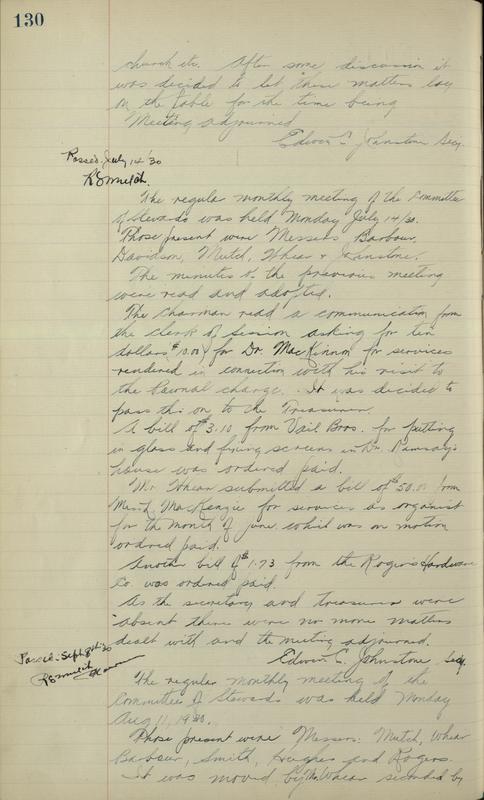 130
church etc. After some discussion it
was decided to let these matters lay
on the table for the time being
Meeting adjourned
Edwin C. Johnstone Secy.
Passed July 14 '30
The regular monthly meeting of the Committee
of Stewards was held Monday July 14/30.
Those present were Messers Barbour,
Davidson, Mutch, Whear & Johnstone.
The minutes of the previous meeting
were read and adopted.
The Chairman read a communication from
the Clerk of Session asking for ten
dollars $10.00 for Dr. MacKinnon for services
rendered in connection with his visit to
the Pownal charge. It was decided to
pass this on to the Treasurer.
A bill of $3.10 from Vail Bros. for putting
in glass and fixing screens in Dr. Ramsay's
house was ordered paid.
Mr. Whear submitted a bill of $50.00 from
MacKenzie for services as organist
for the month of June which was on motion
ordered paid.
Another bill of $1.73 from the Rogers Hardware
Co. was ordered paid.
As the secretary and treasurer were
absent there were no more matters
dealt with and the meeting adjourned.
Edwin C. Johnstone, Secy.
Passed Sept 8th 30
The regular monthly meeting of the
Committee of Stewards was held Monday
Aug 11, 1930.
Those present were Messers. Mutch, Whear
Barbour, Smith, Hughes and Rogers.
It was moved by Mr. Whear seconded by